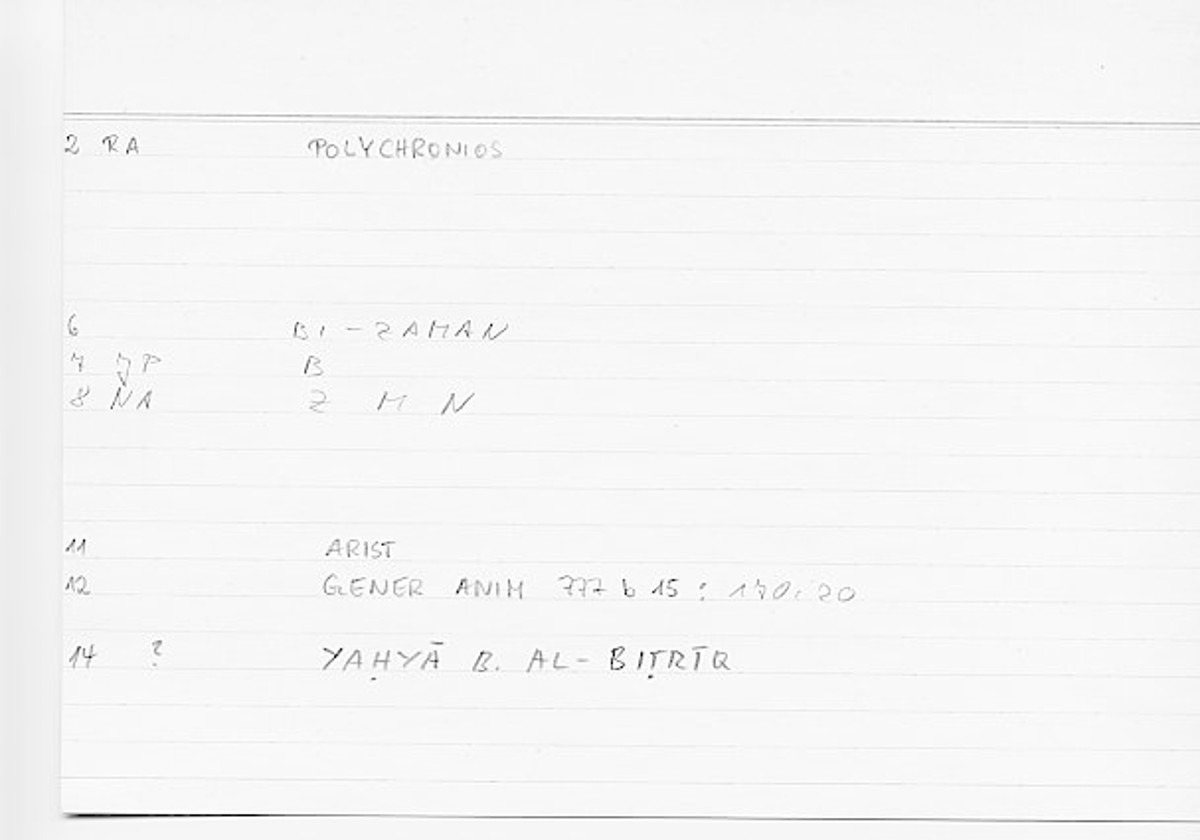 2 RA POLYCHRONIOS
6 BI-ZAMAN
7 JP B
8 NA Z M N
11 ARIST
12 GENER ANIM 777 b 15 : 170.20
14 ? YAḤYĀ B. AL-BIṬRĪQ